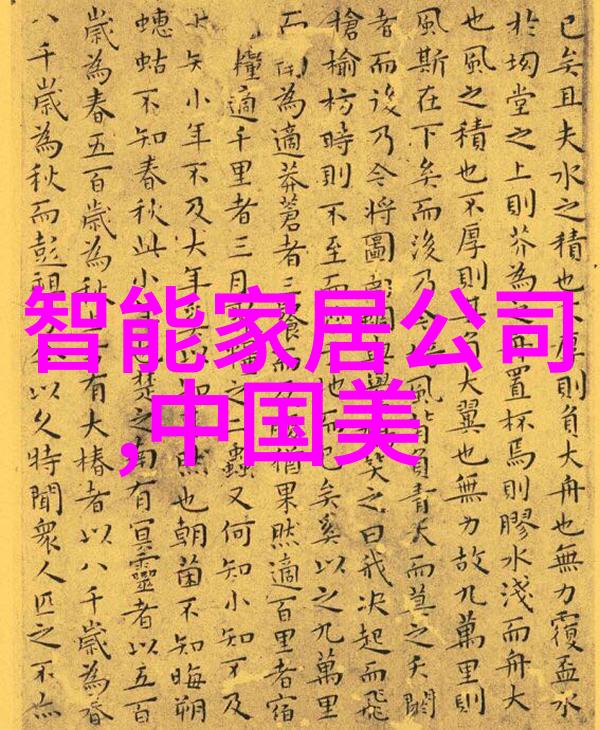 智能家居公司
,中国美
已矣且夫水之積也不厚則負大舟也無力覆盃水
於坳堂之上則芥為之舟置杯焉則膠水淺而舟大
也風之積也不厚則其負大翼也無力故九萬里則
風斯在下矣而後乃今風背負青天而莫之夭閼
者而後乃今將圖南與笑之曰我決起而飛
搶榆枋時則不至而也而已矣奚以之九萬里
而為適莽蒼者三飡而反猶果然適百里者宿
糧適千里者三月糧之二蟲又何知小知不及
知小年不及大年奚以知然也朝菌不知晦朔
蟪蛄不知春秋此小年楚之南有冥靈者以五百
歲為春五百歲為秋有大椿者以八千歲為春
八千歲為秋而彭祖今以久特聞衆人匹之不亦